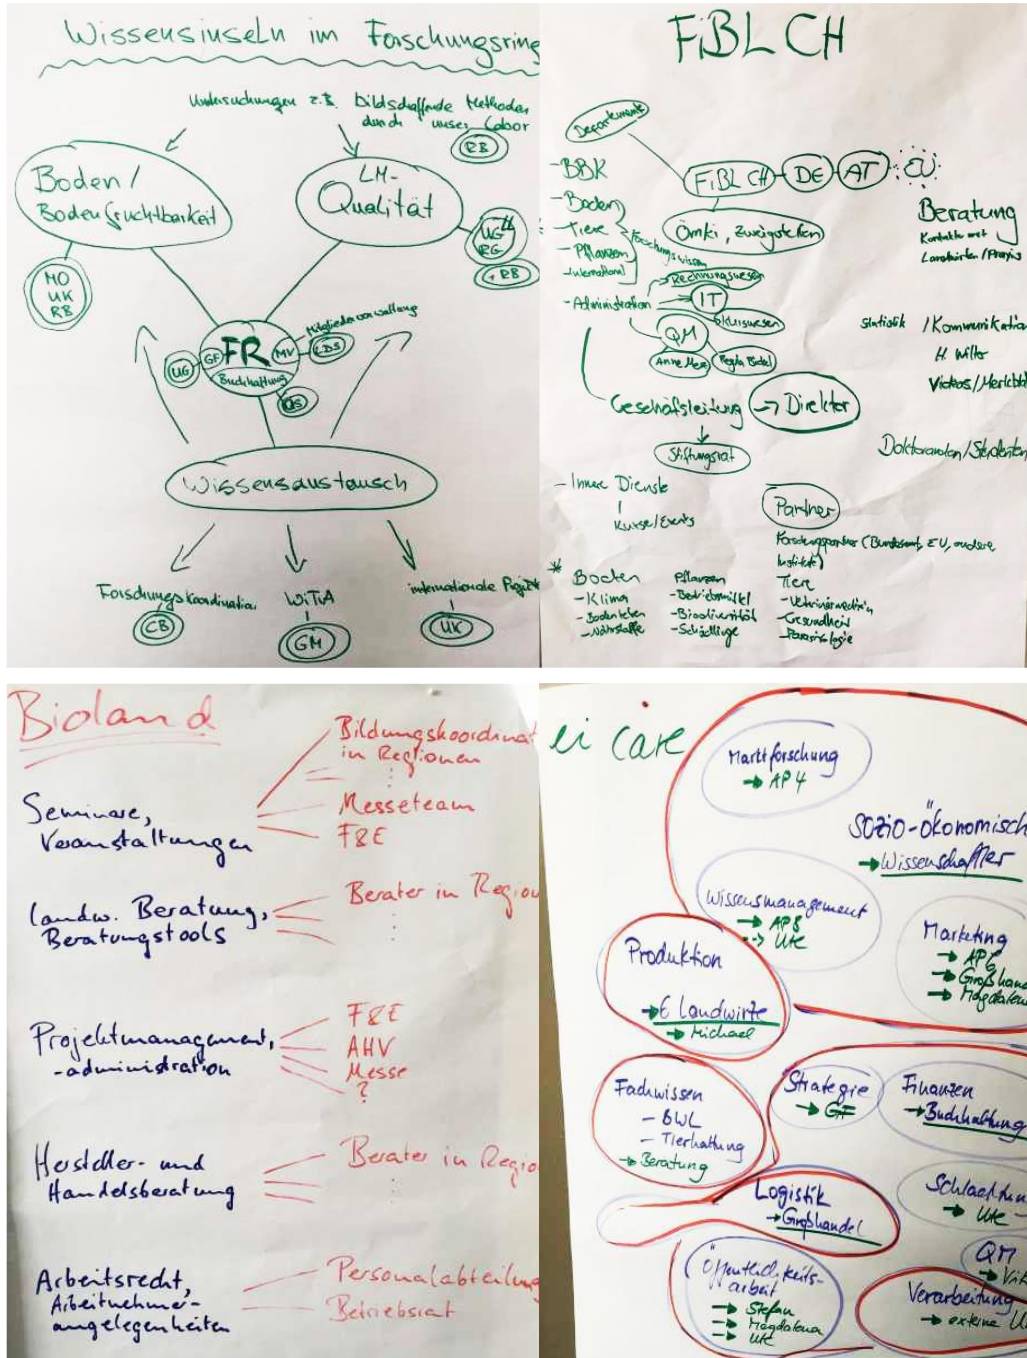 Wissensinseln im Forschungsring
Untersuchungen z.B. bildschaffende Methoden
durch unser Labor
RB
Boden/
Bodenfruchtbarkeit
LM-
Qualität
MO
UK
RB
UG
RG
+RB
Mitgliederverwaltung
UG
GF
FR
MV
Buchhaltung
Wissensaustausch
Forschungskoordination
CB
WiTiA
GM
internationale Projekt
UK
FiBL CH
Departemente
FiBL CH
DE
AT
EU
- BBK
- Boden
- Tiere
- Pflanzen
- International
Forschungswissen
- Administration
Ömki, Zweigstellen
Rechnungswesen
IT
Kurswesen
QM
Beratung
Kontakte mit
Landwirten/Praxis
Statistik / Kommunikation
Videos/Merkbl
Geschäfsleitung → Direktor
Stiftungsrat
Doktoranden/Studenten
- Innere Dienste
Kurse/Events
Partner
Forschungspartner (Bundesamt, EU, andere
Institute)
* Boden
- Klima
- Bodenleben
- Nährstoffe
Pflanzen
- Betriebsmittel
- Biodiversität
- Schädlinge
Tiere
- Veterinärmedizin
- Gesundheit
- Parasitologie
Bioland
Seminare,
Veranstaltungen
Bildungskoordinat
in Regionen
Messeteam
F&E
landw. Beratung,
Beratungstools
Berater in Region
Projektmanagement,
-administration
F&E
AHV
Messe
?
Hersteller- und
Handelsberatung
Berater in Regio
Arbeitsrecht,
Arbeitnehmer-
angelegenheiten
Personalabteilung
Betriebsrat
ei care
Marktforschung
→ AP4
Sozio-Ökonomisch
→ Wissenschaftler
Wissensmanagement
→ AP8
--> Ute
Marketing
→ AP6
→ Großhand
→ Magdalena
Produktion
→ 6 Landwirte
→ Michael
Fachwissen
- BWL
- Tierhaltung
→ Beratung
Strategie
→ GF
Finanzen
→ Buchhaltung
Logistik
→ Großhandel
Schlachtun
→ Ute
QM
Öffentlichkeits-
arbeit
→ Stefan
→ Magdalena
→ Ute
Verarbeitung
→ externe U